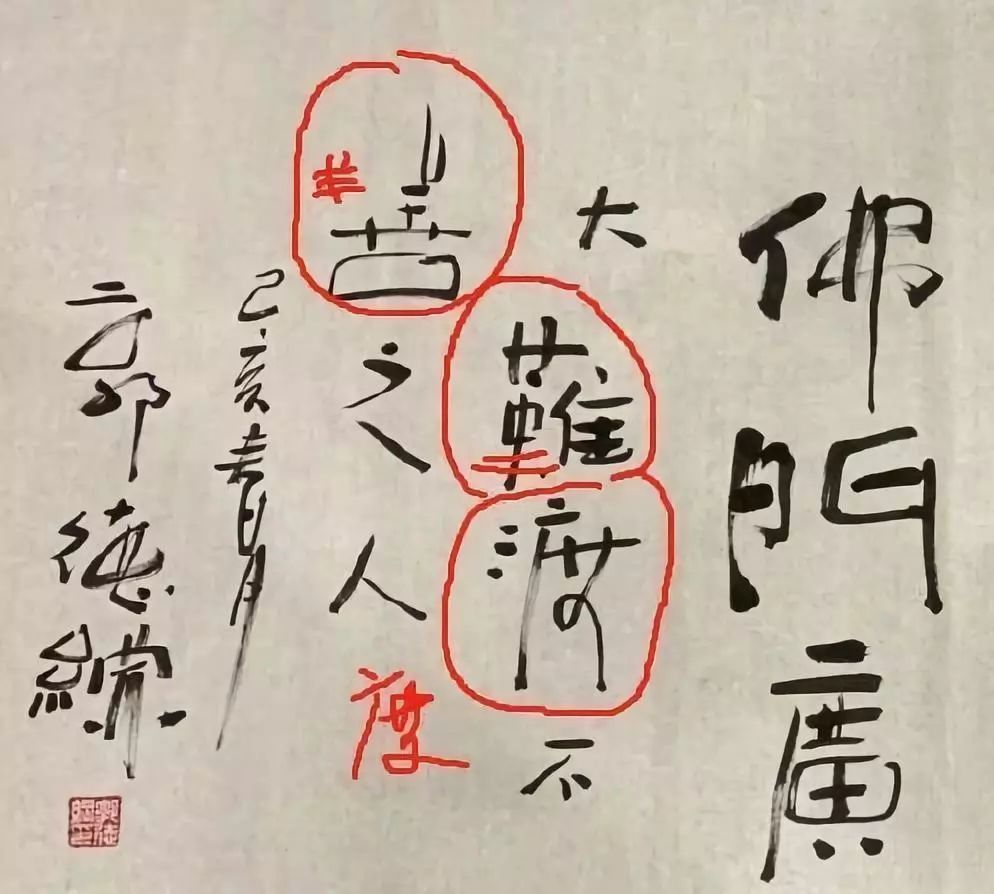 佛門廣
大難渡不
善之人
己亥春月
郭德綱
度